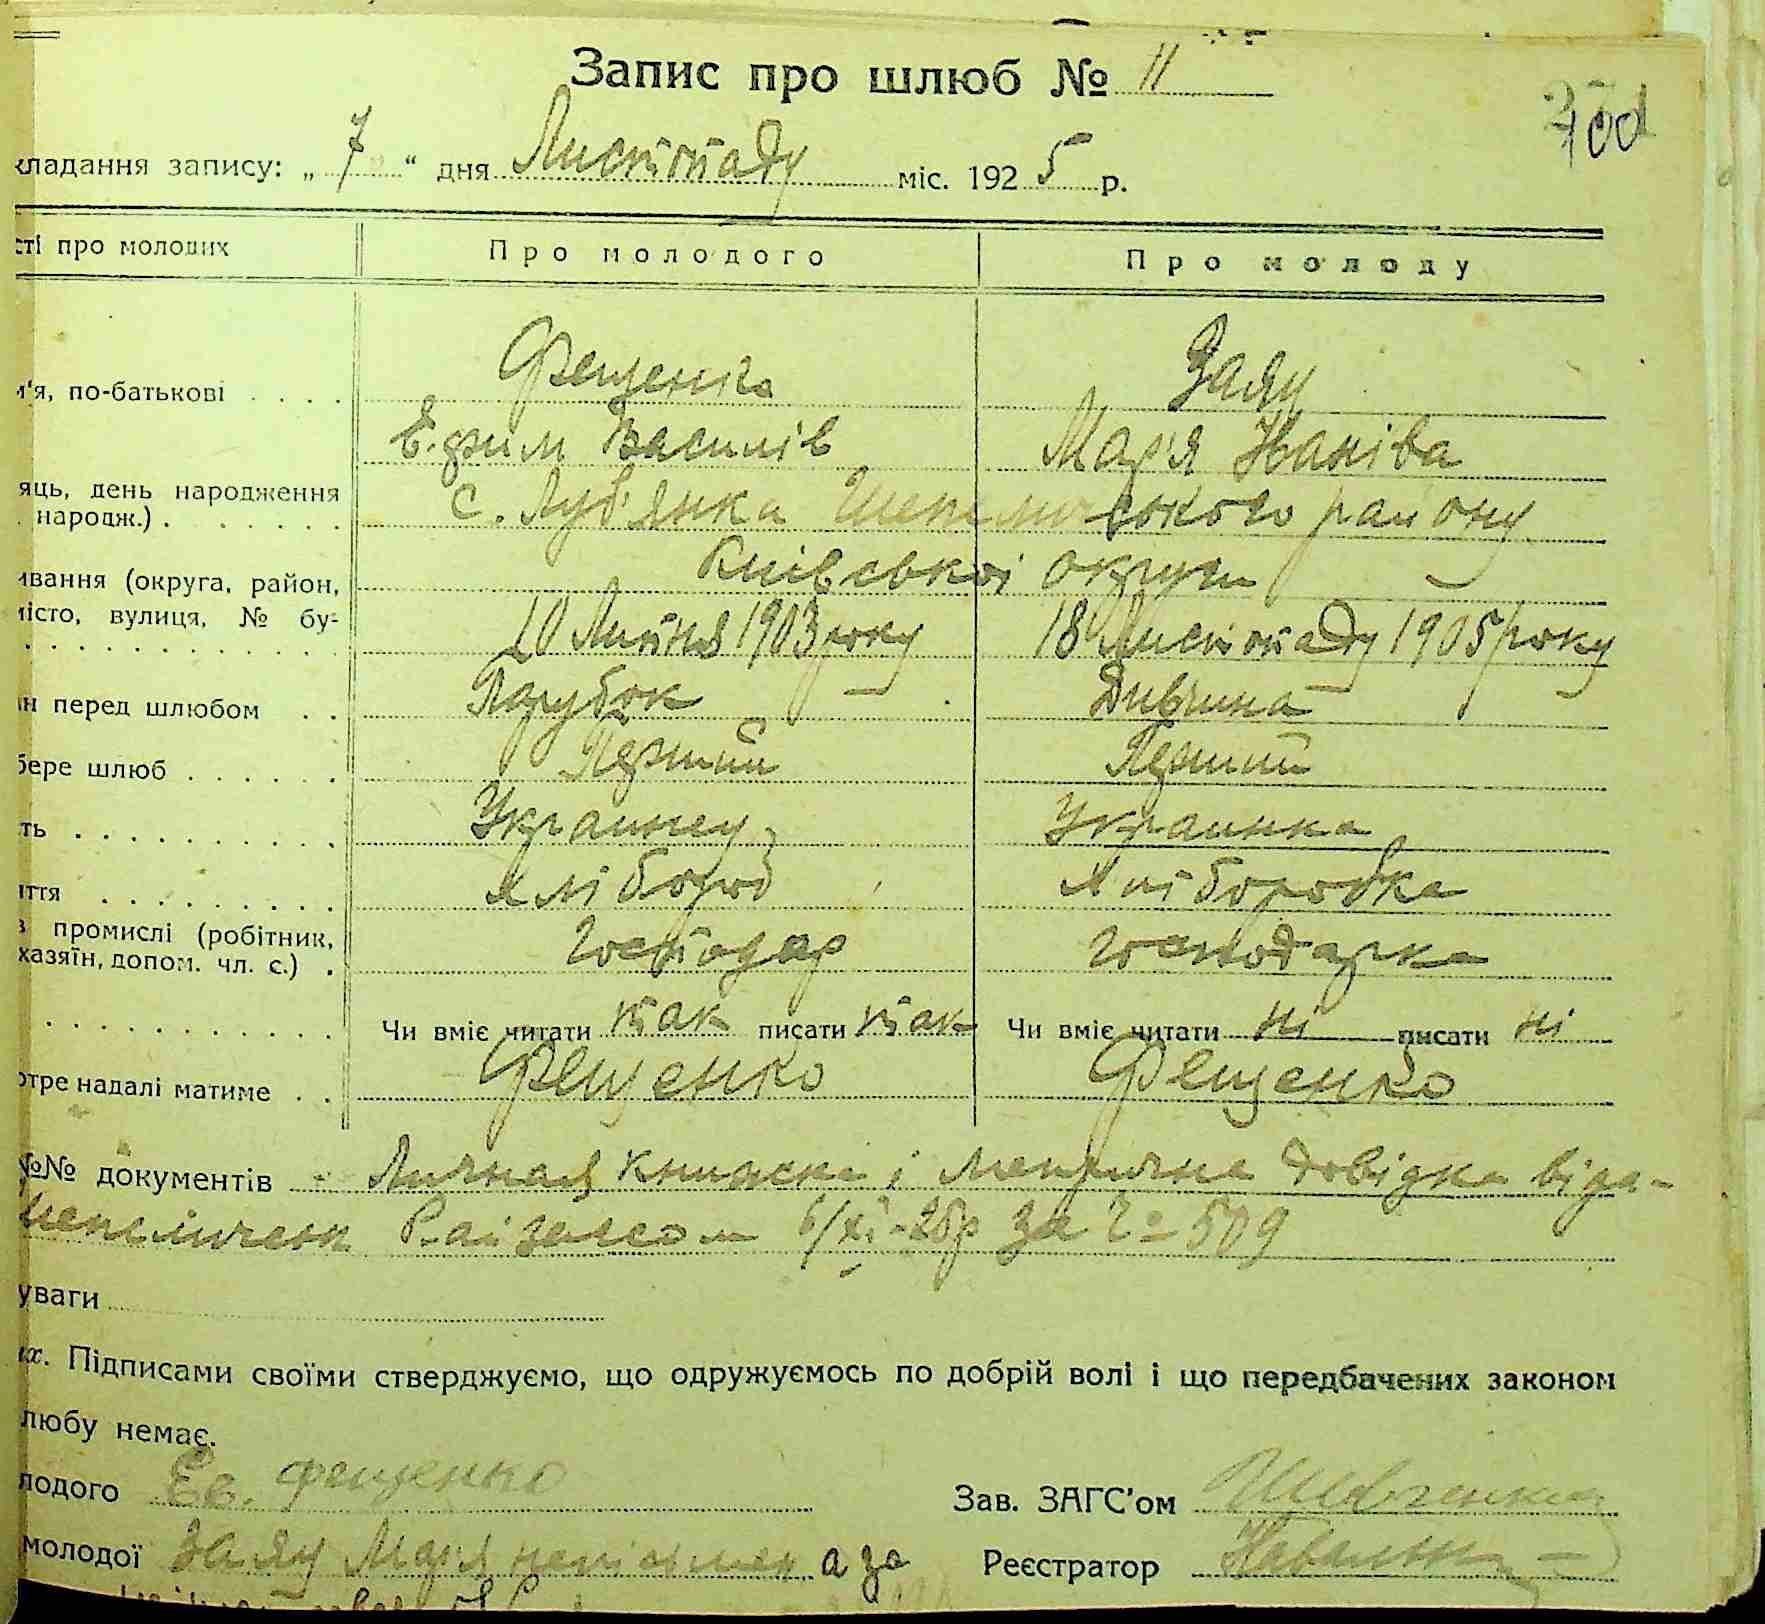 Запис про шлюб № 11
кладання запису: „ 7 “ дня Листопаду міс. 1925 р.
сті про молодих Про молодого Про молоду
Фещенко Заяц
м'я, по-батькові . . . .
Ефим Василів Мар'я Іванівна
яць, день народження
народж.) . с. Луб'янка Шепеличського району
Київської округи
ивання (округа, район,
місто, вулиця, № бу-
10 Липня 1903 року 18 Листопаду 1905 року
н перед шлюбом . . Парубок Дивчина
бере шлюб . . . . . . Перший Перший
ть . . . . . . . . . . Украинец Украинка
ття . . . . . . . . . Хлібороб Хліборобка
в промислі (робітник,
хазяїн, допом. чл. с.) . Господар Господарка
Чи вміє читати так писати так Чи вміє читати ні писати ні
отре надалі матиме . . Фещенко Фещенко
№№ документів - Личная книжка і метрична довідка вида-
Райзагсом 6/XI-25р за № 509
уваги
их. Підписами своїми стверджуємо, що одружуємось по добрій волі і що передбачених законом
любу немає.
лодого Ев. Фещенко Зав. ЗАГС'ом Шевченко
молодої Заяц Мар'я неписьмен а за Реєстратор